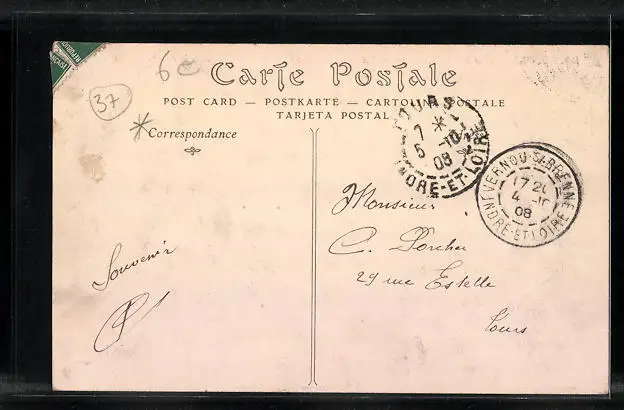 6c
37
Carte Postale
POST CARD — POSTKARTE — CARTOLINA POSTALE
TARJETA POSTAL
*Correspondance
TOURS
7 *
5 -10
08
INDRE-ET-LOIRE
VERNOU-S-BRENNE
17 20
4 -10
08
INDRE-ET-LOIRE
Monsieur
C. Porcher
29 rue Estelle
Tours
Souvenir